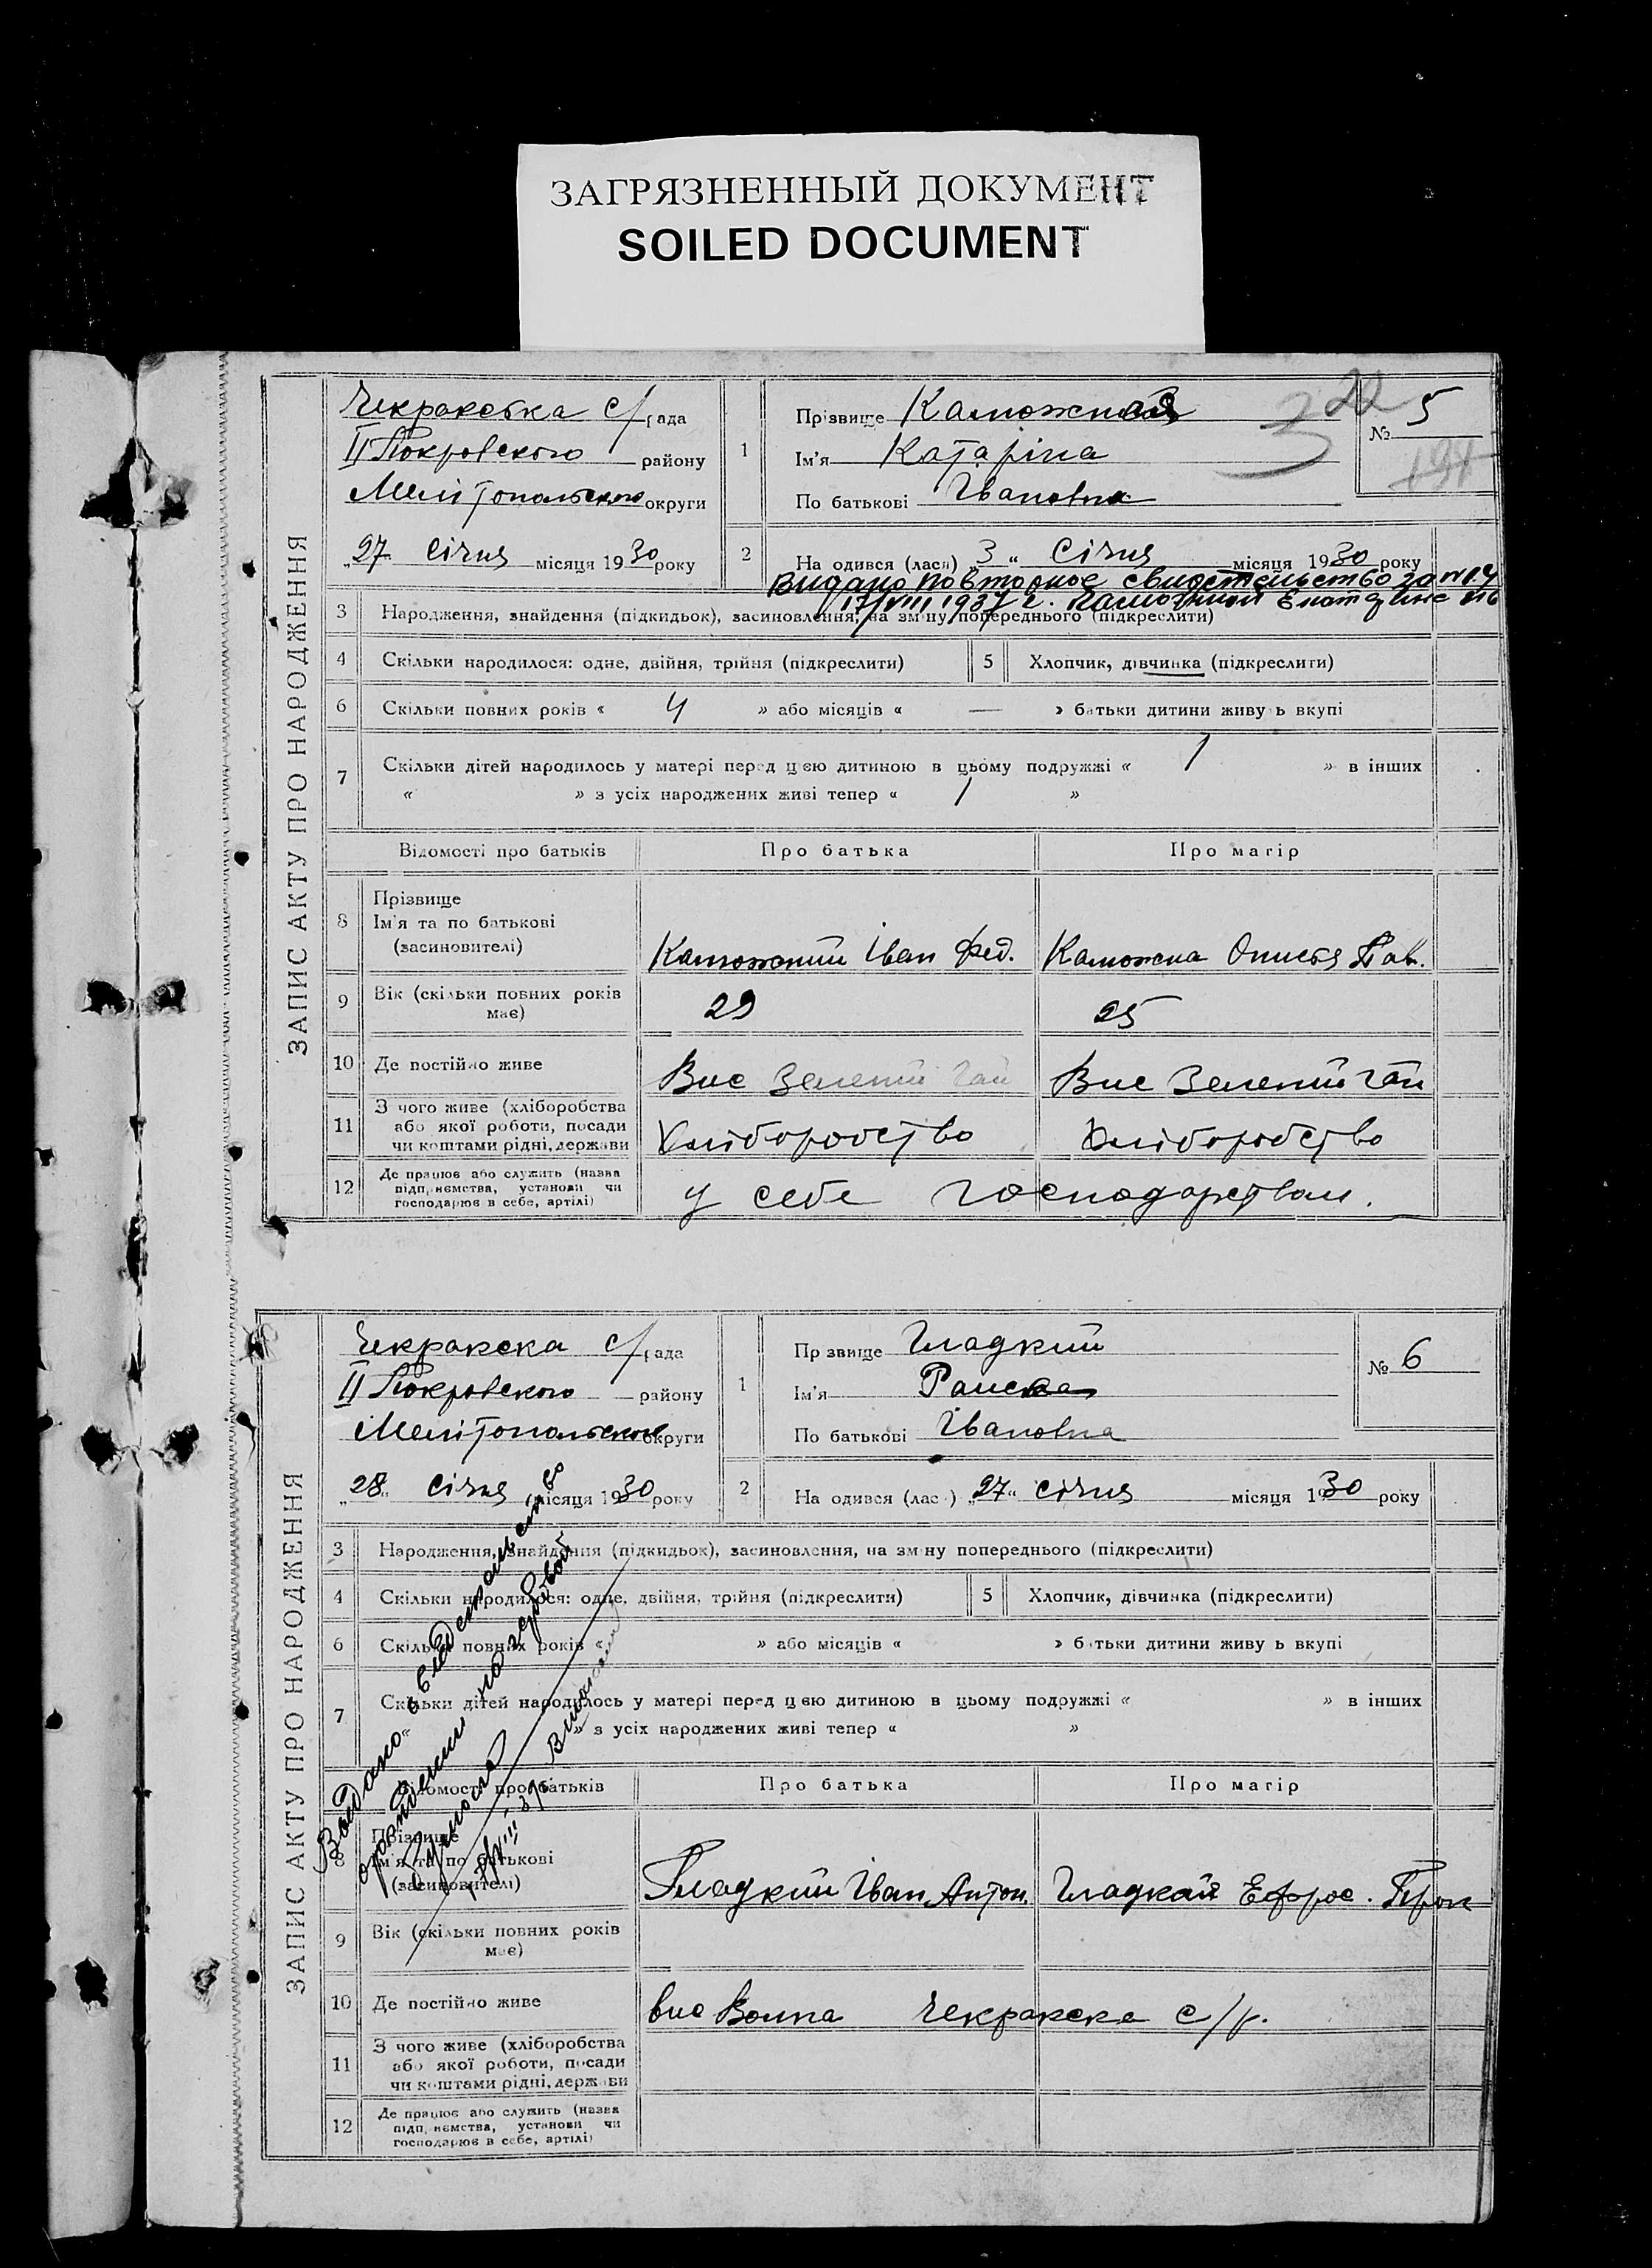 ЗАГРЯЗНЕННЫЙ ДОКУМЕНТ
SOILED DOCUMENT
ЗАПИС АКТУ ПРО НАРОДЖЕННЯ
Чекракська с/рада
II Покровского району
Мелітопольского округи
„27" Січня місяця 1930 року
1
Прізвище Каможная
Ім'я Катаріна
По батькові Івановна
22
3
№ 5
191
2
На одився (лася) „3" Січня місяця 1930 року
Видано повторное свидетельство за №14
17/VIII 1937 г. Екатерине
3 Народження, знайдення (підкидьок), засиновлення, на зміну попереднього (підкреслити)
4 Скільки народилося: одне, двійня, трійня (підкреслити) 5 Хлопчик, дівчинка (підкреслити)
6 Скільки повних років « 4 » або місяців « — » батьки дитини живу ь вкупі
7 Скільки дітей народилось у матері перед цією дитиною в цьому подружжі « 1 » в інших
« » з усіх народжених живі тепер « 1 »
Відомості про батьків Про батька Про матір
8 Прізвище
Ім'я та по батькові
(засиновителі)
Каможний Іван Фед. Каможна Пав.
9 Вік (скільки повних років
має)
29 25
10 Де постійно живе Вис Зелений Гай Вис Зелений Гай
11 З чого живе (хліборобства
або якої роботи, посади
чи коштами рідні, держави
Хліборобство Хліборобство
12 Де працює або служить (назва
підприємства, установи чи
господарює в себе, артілі)
у себе господарством.
ЗАПИС АКТУ ПРО НАРОДЖЕННЯ
Чекракска с/рада
II Покровского району
Мелітопольского округи
„28" Січня місяця 1930 року
1
Пр звище Гладкий
Ім'я Раиса
По батькові Івановна
№ 6
2
На одився (лас ) „27" січня місяця 1930 року
3 Народження, знайдення (підкидьок), засиновлення, на зміну попереднього (підкреслити)
4 Скільки народилося: одне, двійня, трійня (підкреслити) 5 Хлопчик, дівчинка (підкреслити)
6 Скільки повних років « » або місяців « » батьки дитини живу ь вкупі
7 Скільки дітей народилось у матері перед цією дитиною в цьому подружжі « » в інших
« » з усіх народжених живі тепер « »
Видано свидетельство
о рождении на гербовой
бумаге
Відомості про батьків Про батька Про матір
8 Прізвище
Ім'я та по батькові
(засиновителі)
Гладкий Іван Антон. Гладкая Ефрос. Прок
9 Вік (скільки повних років
має)
10 Де постійно живе вис Волна Чекракска с/р.
11 З чого живе (хліборобства
або якої роботи, посади
чи коштами рідні, держави
12 Де працює або служить (назва
підприємства, установи чи
господарює в себе, артілі)